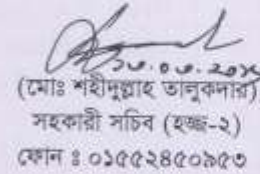 (মোঃ শহীদুল্লাহ তালুকদার)
সহকারী সচিব (হজ্জ-২)
ফোন ঃ ০১৫৫২৪৫০৯৫৩